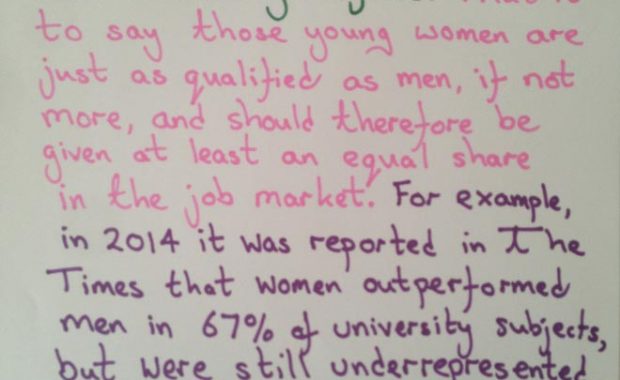 to say those young women are
just as qualified as men, if not
more, and should therefore be
given at least an equal share
in the job market. For example,
in 2014 it was reported in The
Times that women outperformed
men in 67% of university subjects,
but were still underrepresented